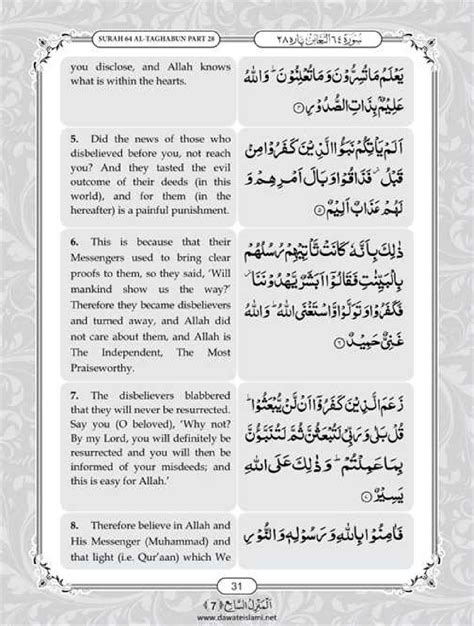 SURAH 64 AL-TAGHABUN PART 28
سورة ٦٤ التغابن پاره ٢٨
you disclose, and Allah knows
what is within the hearts.
يَعْلَمُ مَا تُسِرُّوْنَ وَ مَا تُعْلِنُوْنَ ؕ وَ اللّٰهُ
عَلِیْمٌۢ بِذَاتِ الصُّدُوْرِ ﴿۴﴾
5. Did the news of those who
disbelieved before you, not reach
you? And they tasted the evil
outcome of their deeds (in this
world), and for them (in the
hereafter) is a painful punishment.
اَلَمْ یَاْتِكُمْ نَبَؤُا الَّذِیْنَ كَفَرُوْا مِنْ
قَبْلُ ؗ فَذَاقُوْا وَبَالَ اَمْرِهِمْ وَ
لَهُمْ عَذَابٌ اَلِیْمٌ ﴿۵﴾
6. This is because that their
Messengers used to bring clear
proofs to them, so they said, ‘Will
mankind show us the way?’
Therefore they became disbelievers
and turned away, and Allah did
not care about them, and Allah is
The Independent, The Most
Praiseworthy.
ذٰلِكَ بِاَنَّهٗ كَانَتْ تَّاْتِیْهِمْ رُسُلُهُمْ
بِالْبَیِّنٰتِ فَقَالُوْۤا اَبَشَرٌ یَّهْدُوْنَنَا ؗ
فَكَفَرُوْا وَ تَوَلَّوْا وَّ اسْتَغْنَی اللّٰهُ ؕ وَ اللّٰهُ
غَنِیٌّ حَمِیْدٌ ﴿۶﴾
7. The disbelievers blabbered
that they will never be resurrected.
Say you (O beloved), ‘Why not?
By my Lord, you will definitely be
resurrected and you will then be
informed of your misdeeds; and
this is easy for Allah.’
زَعَمَ الَّذِیْنَ كَفَرُوْۤا اَنْ لَّنْ یُّبْعَثُوْا ؕ
قُلْ بَلٰی وَ رَبِّیْ لَتُبْعَثُنَّ ثُمَّ لَتُنَبَّؤُنَّ
بِمَا عَمِلْتُمْ ؕ وَ ذٰلِكَ عَلَی اللّٰهِ
یَسِیْرٌ ﴿۷﴾
8. Therefore believe in Allah and
His Messenger (Muhammad) and
that light (i.e. Qur’aan) which We
فَاٰمِنُوْا بِاللّٰهِ وَ رَسُوْلِهٖ وَ النُّوْرِ
31
اَلْمَنْزِلُ السَّابِع ﴿7﴾
www.dawateislami.net